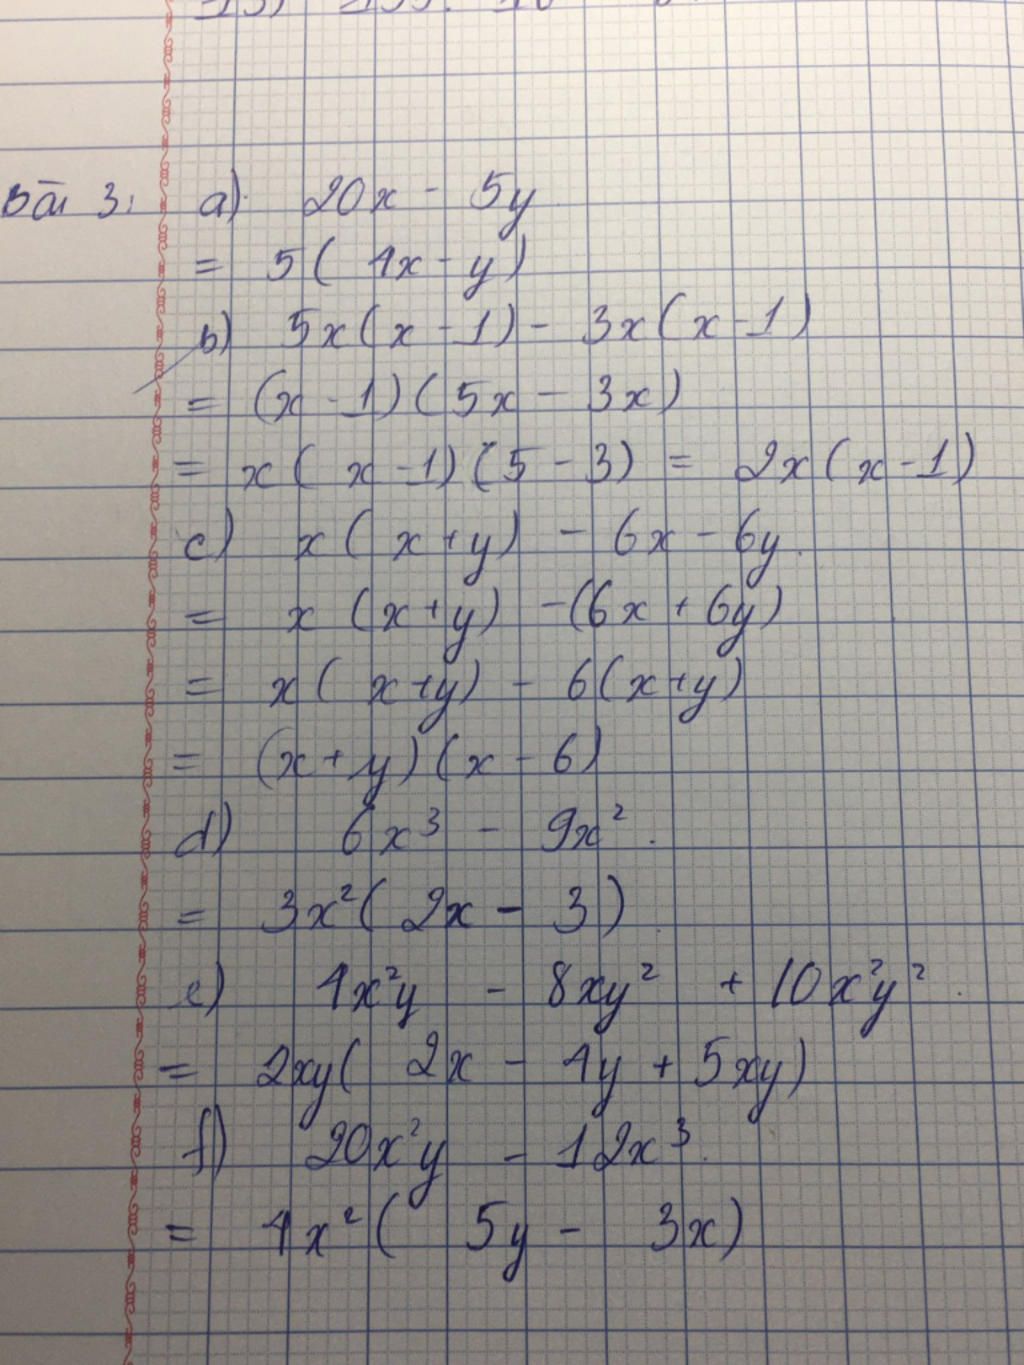 Bài 3: a) 20x - 5y
= 5(4x - y)
b) 5x(x - 1) - 3x(x - 1)
= (x - 1)(5x - 3x)
= x(x - 1)(5 - 3) = 2x(x - 1)
c) x(x + y) - 6x - 6y.
= x(x + y) - (6x + 6y)
= x(x + y) - 6(x + y)
= (x + y)(x - 6)
d) 6x³ - 9x².
= 3x²(2x - 3)
e) 4x²y - 8xy² + 10x²y².
= 2xy(2x - 4y + 5xy)
f) 20x²y - 12x³.
= 4x²(5y - 3x)